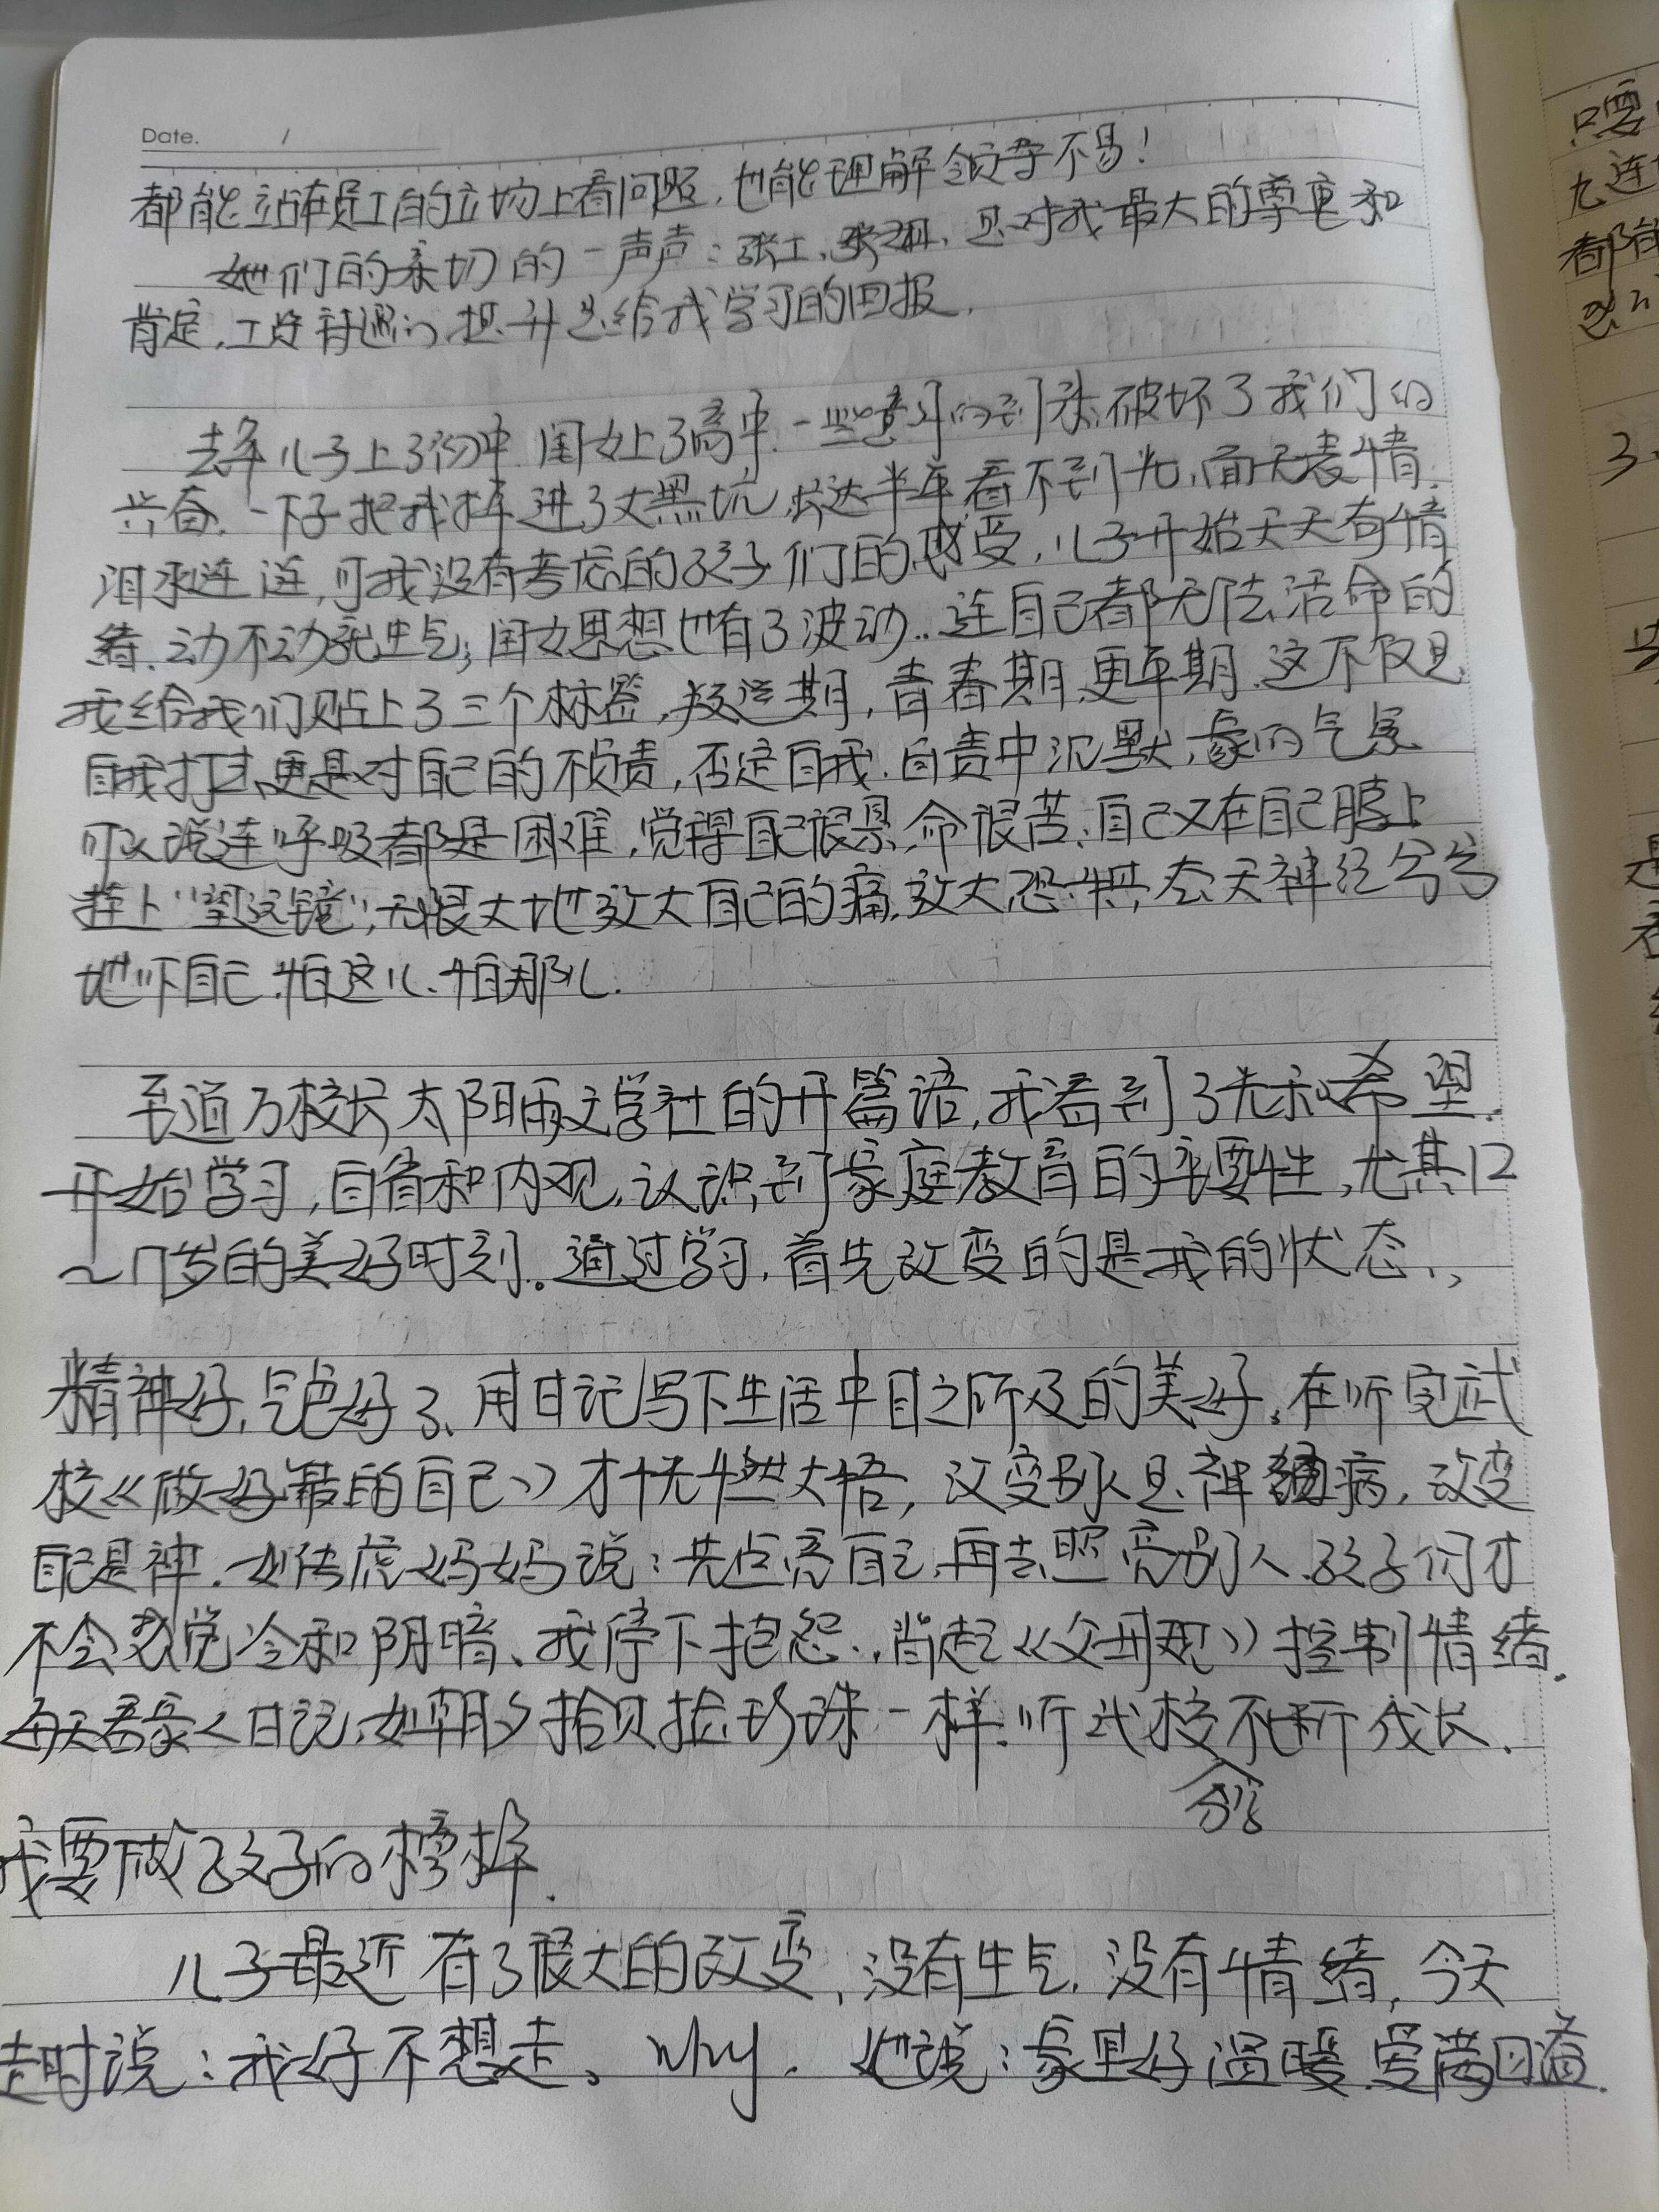 Date. /
都能站在员工的立场上看问题,也能理解领导不易!
她们的亲切的一声声:张工、张姐,是对我最大的尊重和
肯定,工资待遇的提升是给我学习的回报.
去年儿子上了初中,闺女上了高中.一些意外的到来,破坏了我们的
兴奋.一下子把我摔进了大黑坑,长达半年看不到光,面无表情.
泪水涟涟,可我没有考虑的孩子们的感受,儿子开始天天有情
绪.动不动就生气;闺女思想也有了波动..连自己都无法活命的
我给我们贴上了三个标签,叛逆期,青春期,更年期.这不仅是
自我打击,更是对自己的不负责,否定自我.自责中沉默,家的气氛
可以说连呼吸都是困难,觉得自己很累,命很苦;自己又在自己眼上
挂上"望远镜",无限大地放大自己的痛,放大恐惧,整天神经兮兮
地吓自己.怕这儿、怕那儿.
至道万校长太阳雨文学社的开篇语,我看到了光和希望.
开始学习,自省和内观,认识到家庭教育的重要性,尤其12
~17岁的美好时刻。通过学习,首先改变的是我的状态,
精神好,气色好了、用日记写下生活中目之所及的美好。在听完武
校《做最好的自己》才恍然大悟,改变别人是神经病,改变
自己是神.如传虎妈妈说:先点亮自己,再去照亮别人.孩子们才
不会感觉冷和阴暗、我停下抱怨.,背起《父母规》控制情绪.
每天看家人日记,如朝夕拾贝捡珍珠一样.听武校不断成长.
我要做孩子的榜样.
儿子最近有了很大的改变,没有生气,没有情绪,今天
走时说:我好不想走。why. 他说:家里好温暖.爱满回滴.